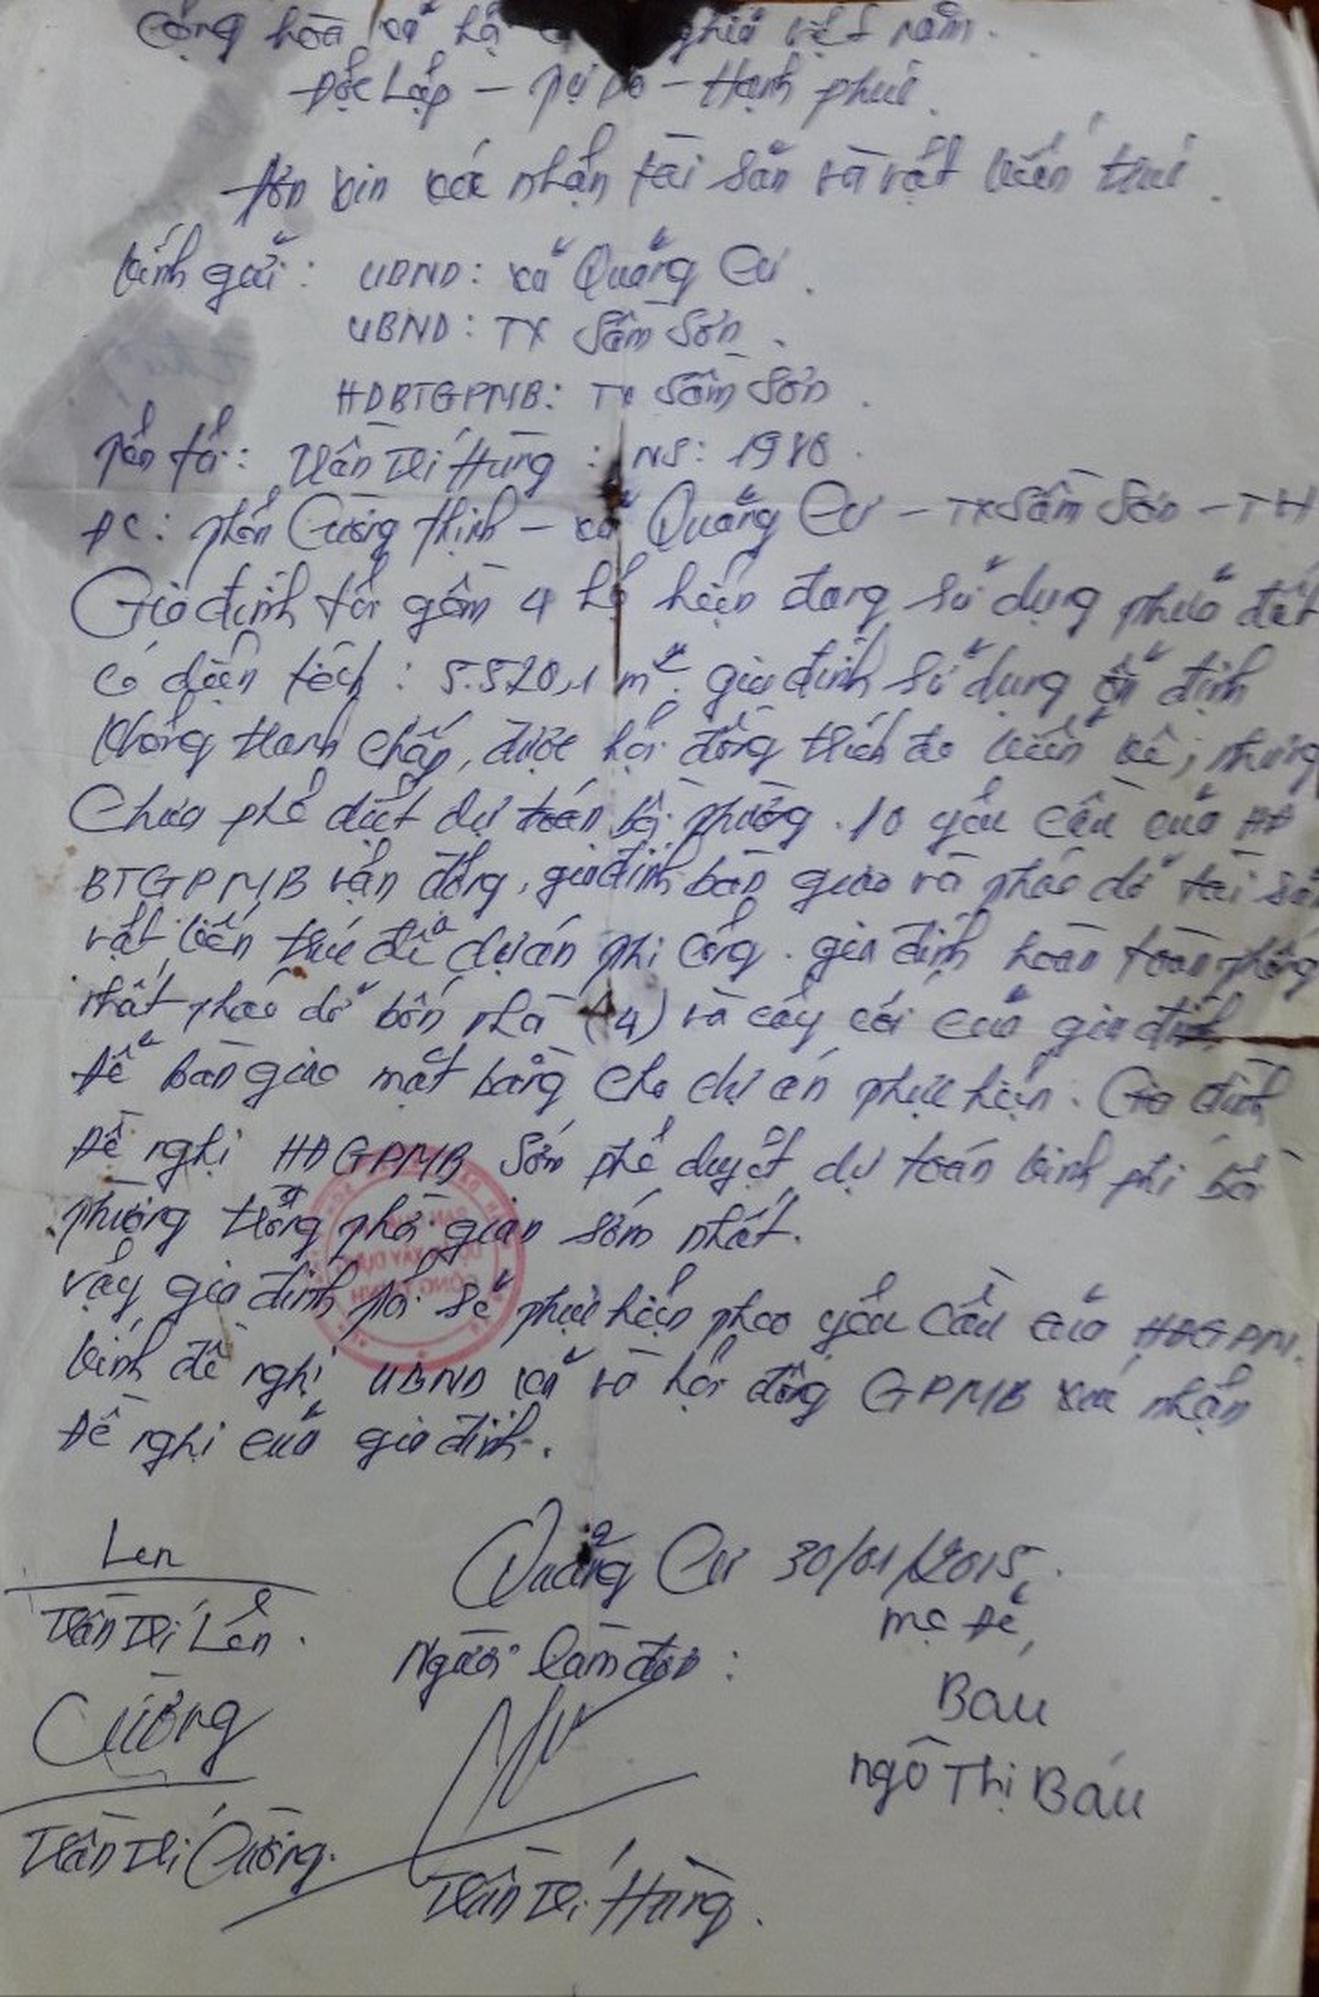 Cộng hòa xã hội nghĩa việt nam.
Độc Lập - Tự Do - Hạnh phúc.
Đơn xin xác nhận tài sản và vật kiến trúc.
Kính gửi: UBND: xã Quảng Cư.
UBND: TX Sầm Sơn.
HDBTGPMB: TX Sầm Sơn.
Tên tôi: Trần Trí Hùng: NS: 1980.
ĐC: thôn Cường Thịnh - xã Quảng Cư - TX Sầm Sơn - TH
Gia đình tôi gồm 4 hộ hiện đang sử dụng thửa đất
có diện tích: 5.520,1 m². gia đình sử dụng ổn định
Không tranh chấp, được hội đồng trích đo kiểm kê, nhưng
Chưa phê duyệt dự toán bồi thường. 10 yêu cầu của HĐ
BTGPMB vận động, gia đình bàn giao và tháo dỡ tài sản
vật kiến trúc để dự án thi công. gia đình hoàn toàn thống
nhất tháo dỡ bốn nhà (4) và cây cối của gia đình
Để Bàn giao mặt bằng cho dự án thực hiện. Gia đình
Đề nghị HĐGPMB Sớm phê duyệt dự toán kinh phí bồi
thường trong thời gian sớm nhất.
vậy gia đình tôi sẽ thực hiện theo yêu cầu của HĐGPM.
kính đề nghị UBND xã và hội đồng GPMB xác nhận
Đề nghị của gia đình.
Quảng Cư 30/01/2015.
Len
Trần Trí Lên.
Người làm đơn:
mẹ Đẻ,
Cường
Báu
Trần Trí Cường.
Ngô Thị Báu
Trần Trí Hùng.